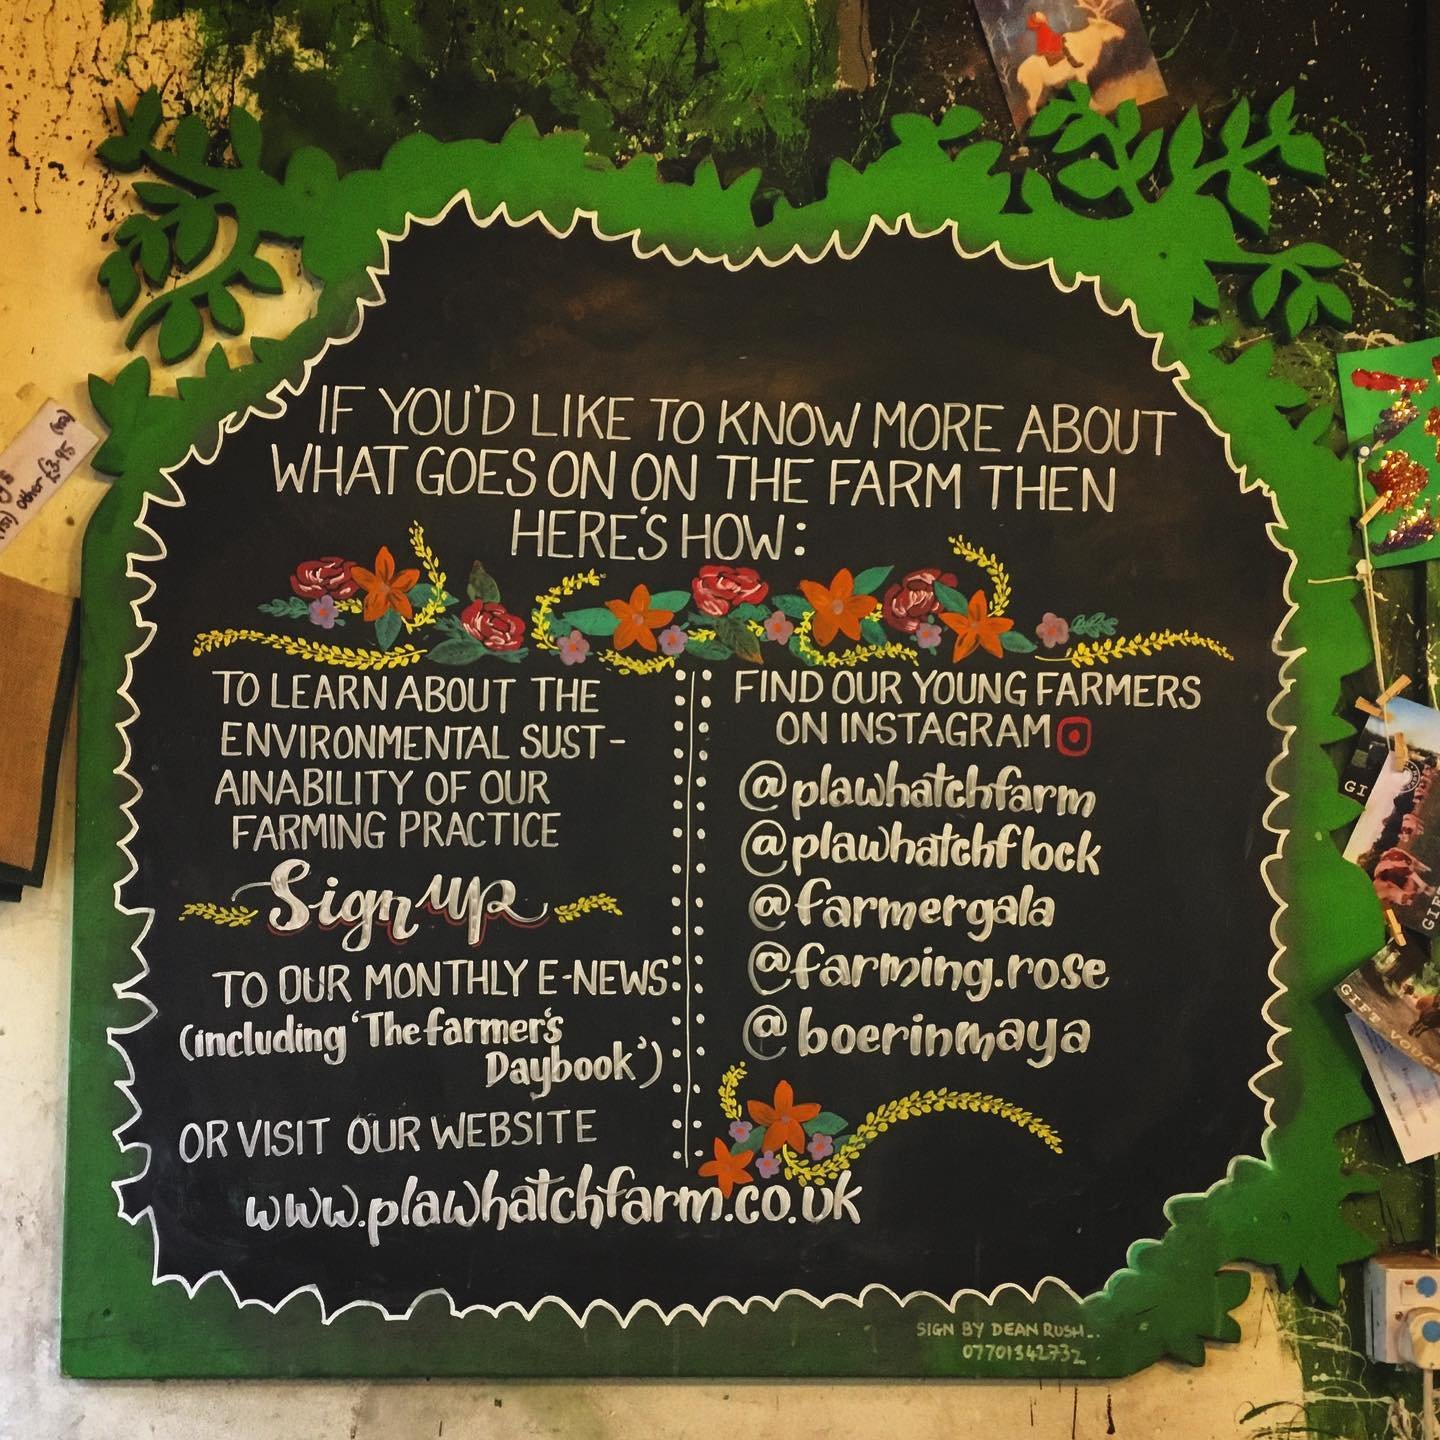 IF YOU'D LIKE TO KNOW MORE ABOUT
WHAT GOES ON ON THE FARM THEN
HERE'S HOW:
TO LEARN ABOUT THE
ENVIRONMENTAL SUST-
AINABILITY OF OUR
FARMING PRACTICE
Sign up
TO OUR MONTHLY E-NEWS
(including 'The farmer's
Daybook')
OR VISIT OUR WEBSITE
www.plawhatchfarm.co.uk
FIND OUR YOUNG FARMERS
ON INSTAGRAM
@plawhatchfarm
@plawhatchflock
@farmergala
@farming.rose
@boerinmaya
SIGN BY DEAN RUSH...
07701342732
other £3.95
GI
GIFT
GIFT VOUC